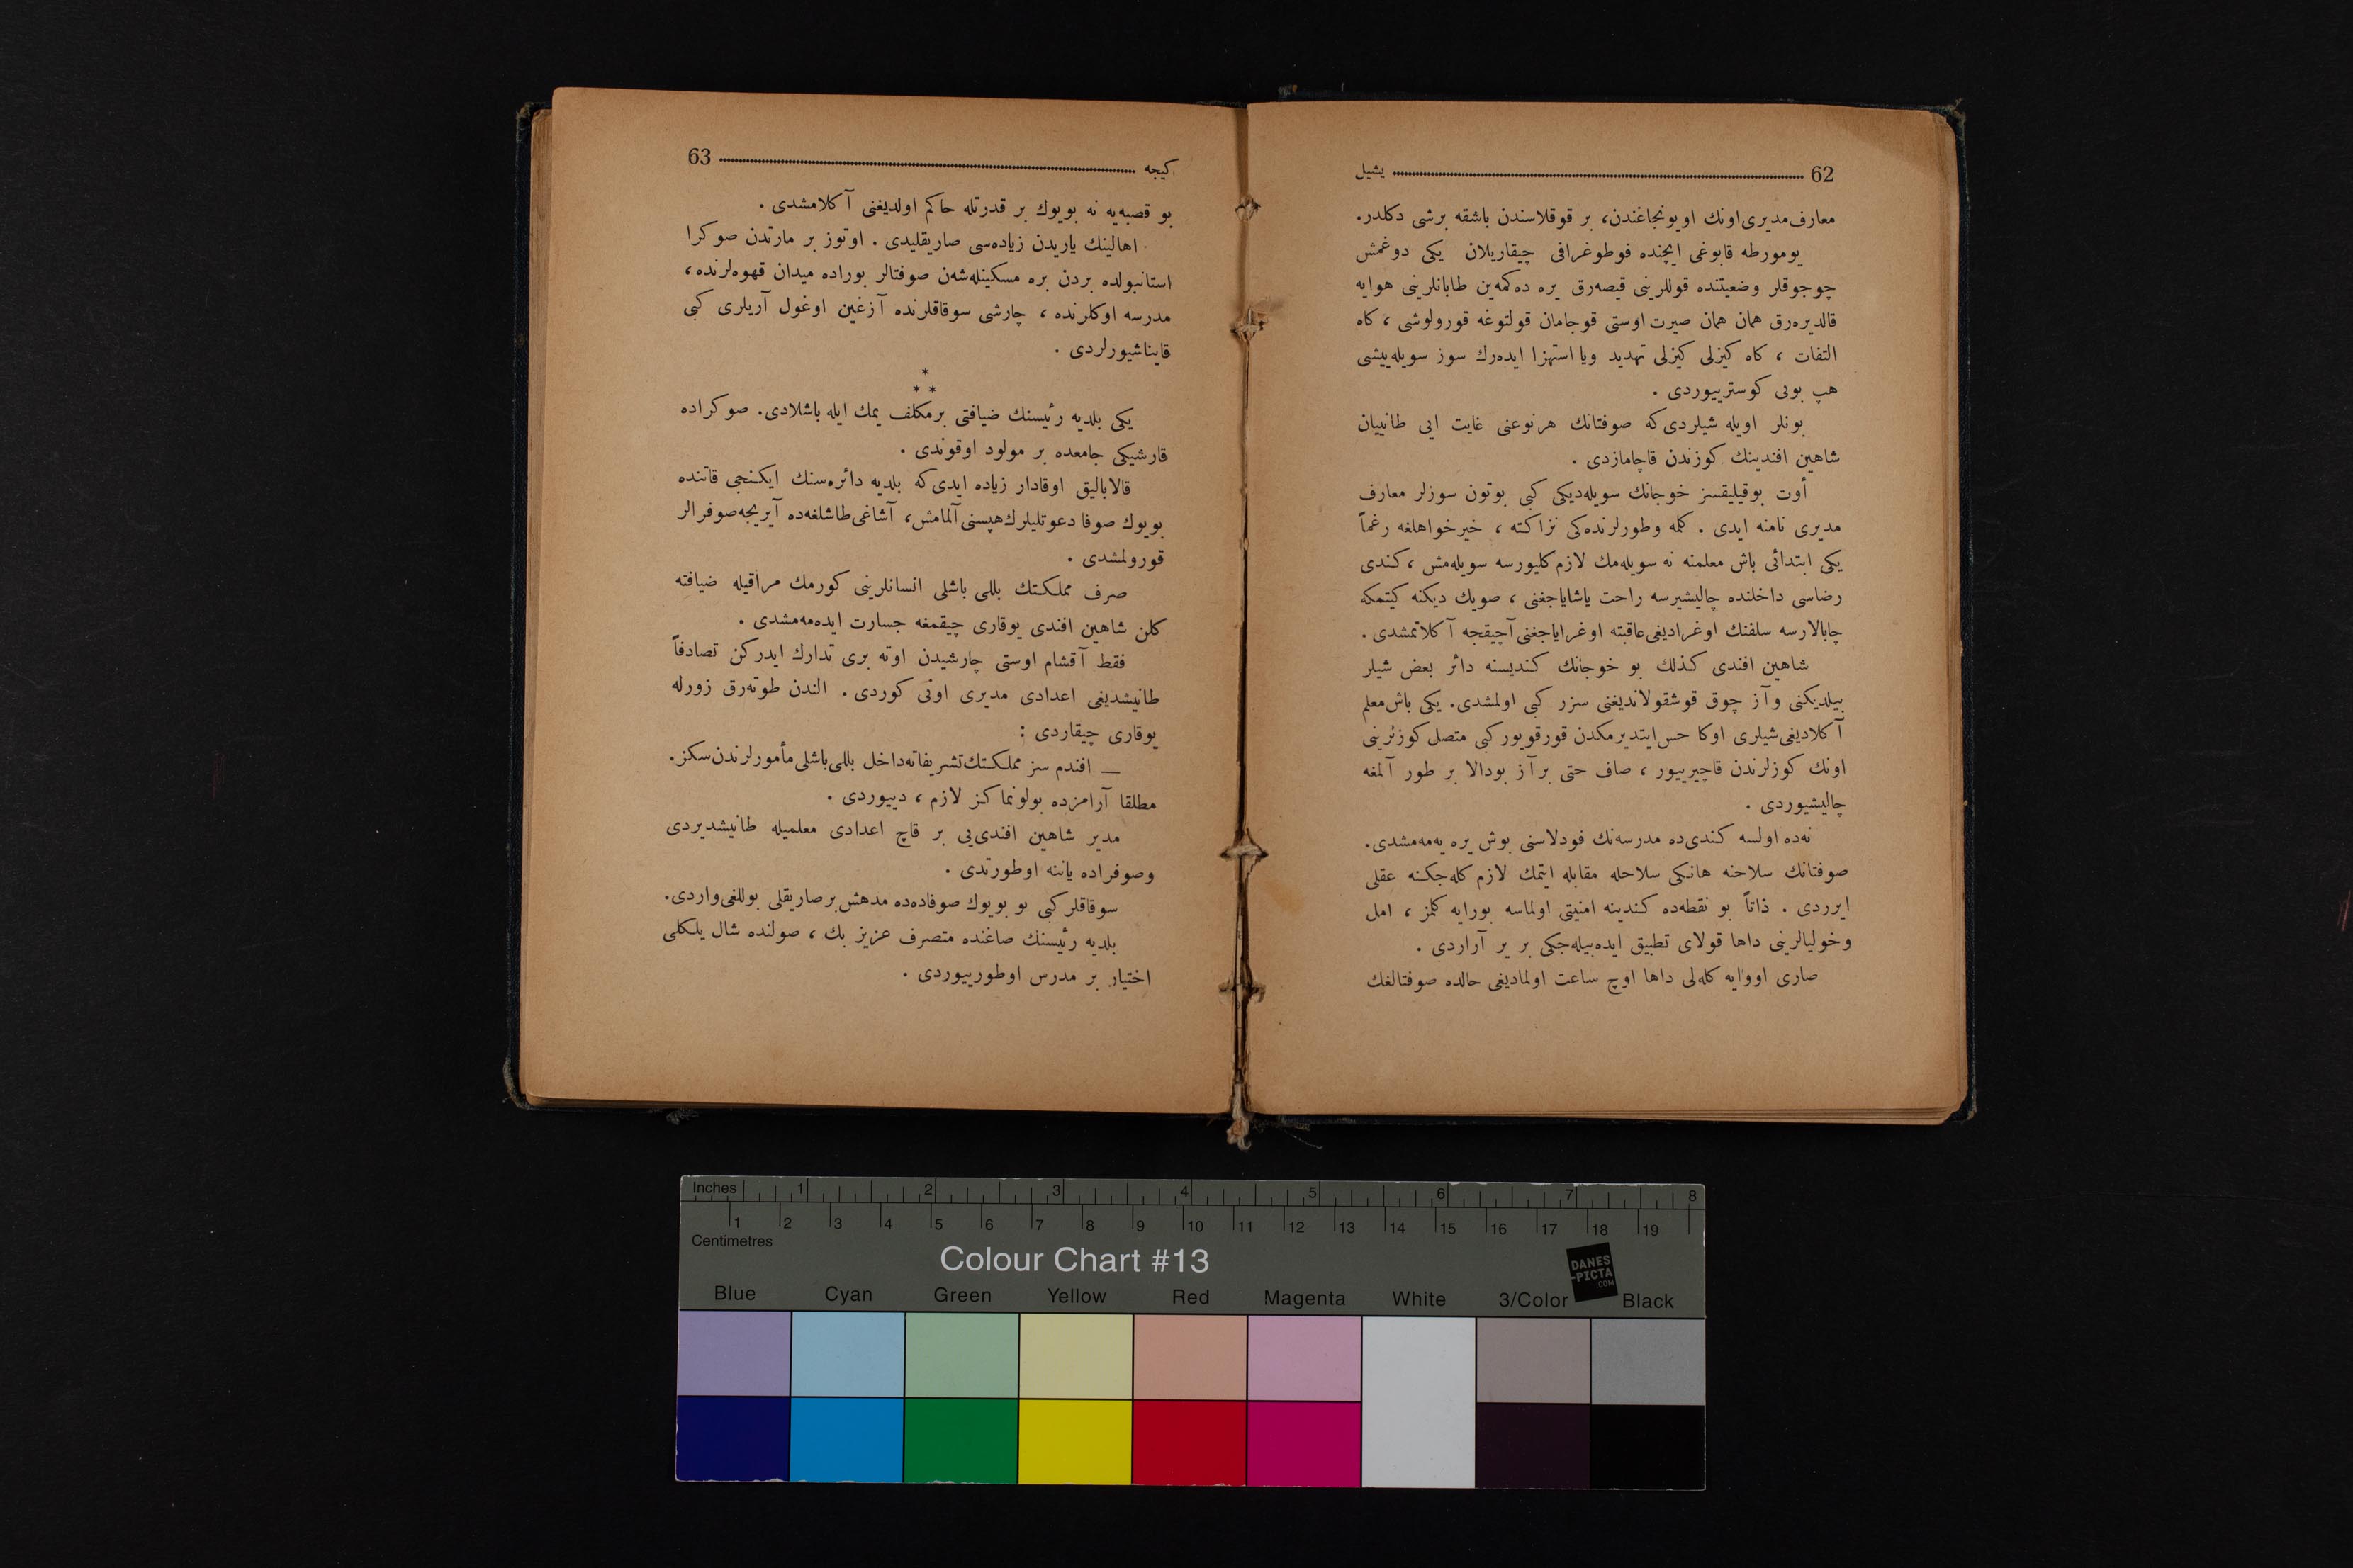 62 يشيل
معارف مديرى اونك اويونجاغندن، بر قوقلاسندن باشقه برشى دكلدر.
يومورطه قابوغى ايچنده فوطوغرافى چيقاريلان يكى دوغمش
چوجوقلر وضعيتنده قوللرينى قيصه‌رق يره ده‌كمه‌ين طابانلرينى هوايه
قالديره‌رق همان همان صيرت اوستى قوجامان قولتوغه قورولوشى ، كاه
التفات ، كاه كيزلى كيزلى تهديد ويا استهزا ايده‌رك سوز سويله‌ييشى
هپ بونى كوسترييوردى .
بونلر اويله شيلردى كه صوفتانك هرنوعنى غايت ايى طانييان
شاهين افندينك كوزندن قاچامازدى .
أوت بوقيليقسز خوجانك سويله‌ديكى كبى بوتون سوزلر معارف
مديرى نامنه ايدى . كلمه وطورلرنده‌كى نزاكته ، خيرخواهلغه رغماً
يكى ابتدائى باش معلمنه نه سويله‌مك لازم كليورسه سويله‌مش ، كندى
رضاسى داخلنده چاليشيرسه راحت ياشاياجغنى ، صويك ديكنه كيتمكه
چابالارسه سلفنك اوغراديغى عاقبته اوغراياجغنى آچيقجه آكلاتمشدى .
شاهين افندى كذلك بو خوجانك كنديسنه دائر بعض شيلر
بيلديكنى وآز چوق قوشقولانديغنى سزر كبى اولمشدى. يكى باش معلم
آكلاديغى شيلرى اوكا حس ايتديرمكدن قورقويور كبى متصل كوزلرينى
اونك كوزلرندن قاچيرييور ، صاف حتى بر آز بودالا بر طور آلمغه
چاليشيوردى .
نه‌ده اولسه كندى‌ده مدرسه‌نك فودلاسنى بوش يره يه‌مه‌مشدى.
صوفتانك سلاحنه هانكى سلاحله مقابله ايتمك لازم كله‌جكنه عقلى
ايرردى . ذاتاً بو نقطه‌ده كندينه امنيتى اولماسه بورايه كلمز ، امل
وخوليالرينى داها قولاى تطبيق ايده‌بيله‌جكى بر ير آراردى .
صارى اووايه كله‌لى داها اوچ ساعت اولماديغى حالده صوفتالغك
كيجه 63
بو قصبه‌يه نه بويوك بر قدرتله حاكم اولديغنى آكلامشدى .
اهالينك ياريدن زياده‌سى صاريقليدى . اوتوز بر مارتدن صوكرا
استانبولده بردن بره مسكينله‌شه‌ن صوفتالر بوراده ميدان قهوه‌لرنده ،
مدرسه اوكلرنده ، چارشى سوقاقلرنده آزغين اوغول آريلرى كبى
قايناشيورلردى .
*
* *
يكى بلديه رئيسنك ضيافتى برمكلف يمك ايله باشلادى. صوكراده
قارشيكى جامعده بر مولود اوقوندى .
قالاباليق اوقادار زياده ايدى كه بلديه دائره‌سنك ايكنجى قاتنده
بويوك صوفا دعوتليلرك هپسنى آلمامش، آشاغى طاشلغه‌ده آيريجه صوفرالر
قورولمشدى .
صرف مملكتك بللى باشلى انسانلرينى كورمك مراقيله ضيافته
كلن شاهين افندى يوقارى چيقمغه جسارت ايده‌مه‌مشدى .
فقط آقشام اوستى چارشيدن اوته برى تدارك ايدركن تصادفاً
طانيشديغى اعدادى مديرى اونى كوردى . الندن طوته‌رق زورله
يوقارى چيقاردى :
— افندم سز مملكتك تشريفاته داخل بللى باشلى مأمورلرندن سكز.
مطلقا آرامزده بولونماكز لازم ، دييوردى .
مدير شاهين افندى‌يى بر قاچ اعدادى معلميله طانيشديردى
وصوفراده ياننه اوطورتدى .
سوقاقلر كبى بو بويوك صوفاده‌ده مدهش بر صاريقلى بوللغى واردى.
بلديه رئيسنك صاغنده متصرف عزيز بك ، صولنده شال يلكلى
اختيار بر مدرس اوطورييوردى .
Inches 1 2 3 4 5 6 7 8
1 2 3 4 5 6 7 8 9 10 11 12 13 14 15 16 17 18 19
Centimetres
Colour Chart #13
DANES
-PICTA
.COM
Blue Cyan Green Yellow Red Magenta White 3/Color Black